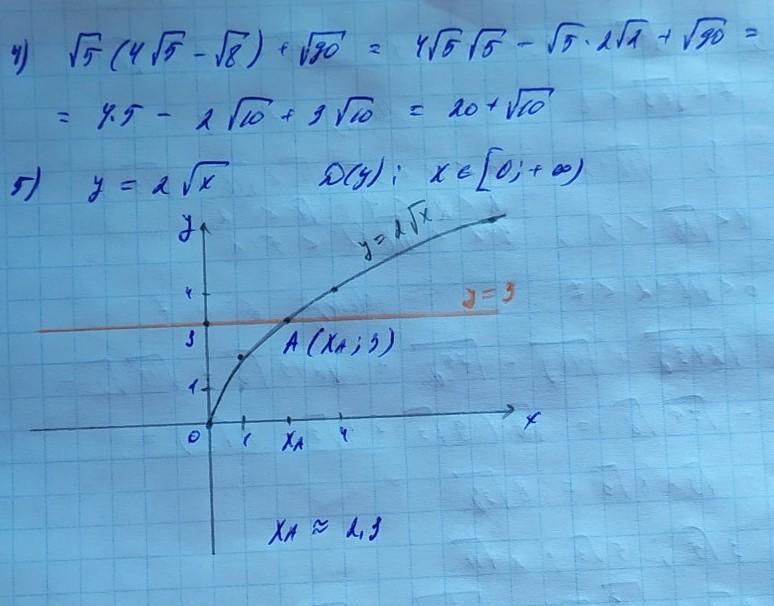 4) √5 (4√5 - √8) + √90 = 4√5√5 - √5·2√2 + √90 =
= 4·5 - 2√10 + 3√10 = 20 + √10
5) y = 2√x D(y): x ∈ [0; +∞)
y
y = 2√x
4
y = 3
3
A (xA; 3)
1
0 1 xA 4 x
xA ≈ 2,3